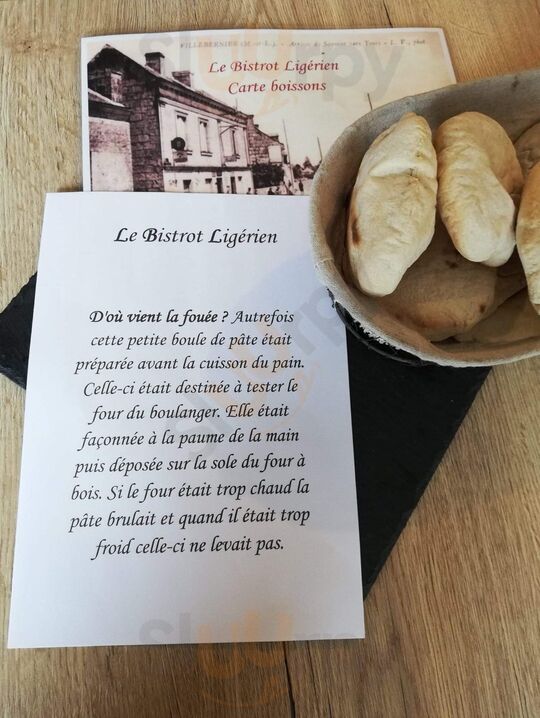 VILLEBERNIER (M.-et-L.)
Le Bistrot Ligérien
Carte boissons
Le Bistrot Ligérien
D'où vient la fouée ? Autrefois
cette petite boule de pâte était
préparée avant la cuisson du pain.
Celle-ci était destinée à tester le
four du boulanger. Elle était
façonnée à la paume de la main
puis déposée sur la sole du four à
bois. Si le four était trop chaud la
pâte brulait et quand il était trop
froid celle-ci ne levait pas.
Sluurpy